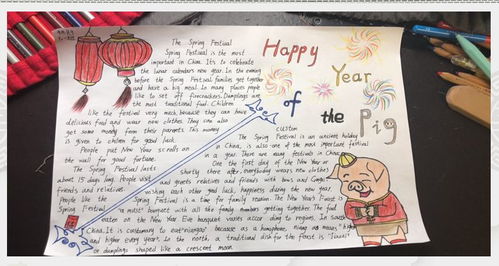 The Spring Festival
Spring Festival is the most
important in China. It's to celebrate
the lunar calendars new year. In the evening
before the Spring Festival families get together
and have a big meal. In many places people
like to set off firecrackers. Dumplings are
the most traditional food. Children
like the festival very much, because they can have
delicious food and wear new clothes. They can also
get some money from their parents. This money
is given to children for good luck.
People put New Year scrolls on
the wall for good fortune.
The Spring Festival lasts
about 15 days long. People visit
friends and relatives
People like the
Spring Festival
Happy
Year
of
the
Pig
custom
The Spring Festival is an ancient holiday
in China, is also one of the most important festival
in a year. There are many festivals in China
One the first day of the New Year or
Shortly there after, everybody wears new clothes
and greets relatives and friends with bows and Gongxi
wishing each other good luck, happiness during the new year.
Spring Festival is a time for family reunion. The New Year's Feast is
a must banquet with all the family members getting together. The food
eaten on the New Year Eve banquet varies according to regions. In South
China. It is customary to eat "niangao" because as a homophone, means "higher
and higher every year". In the north, a traditional dish for the feast is "Jiaozi"
or dumplings shaped like a crescent moon.